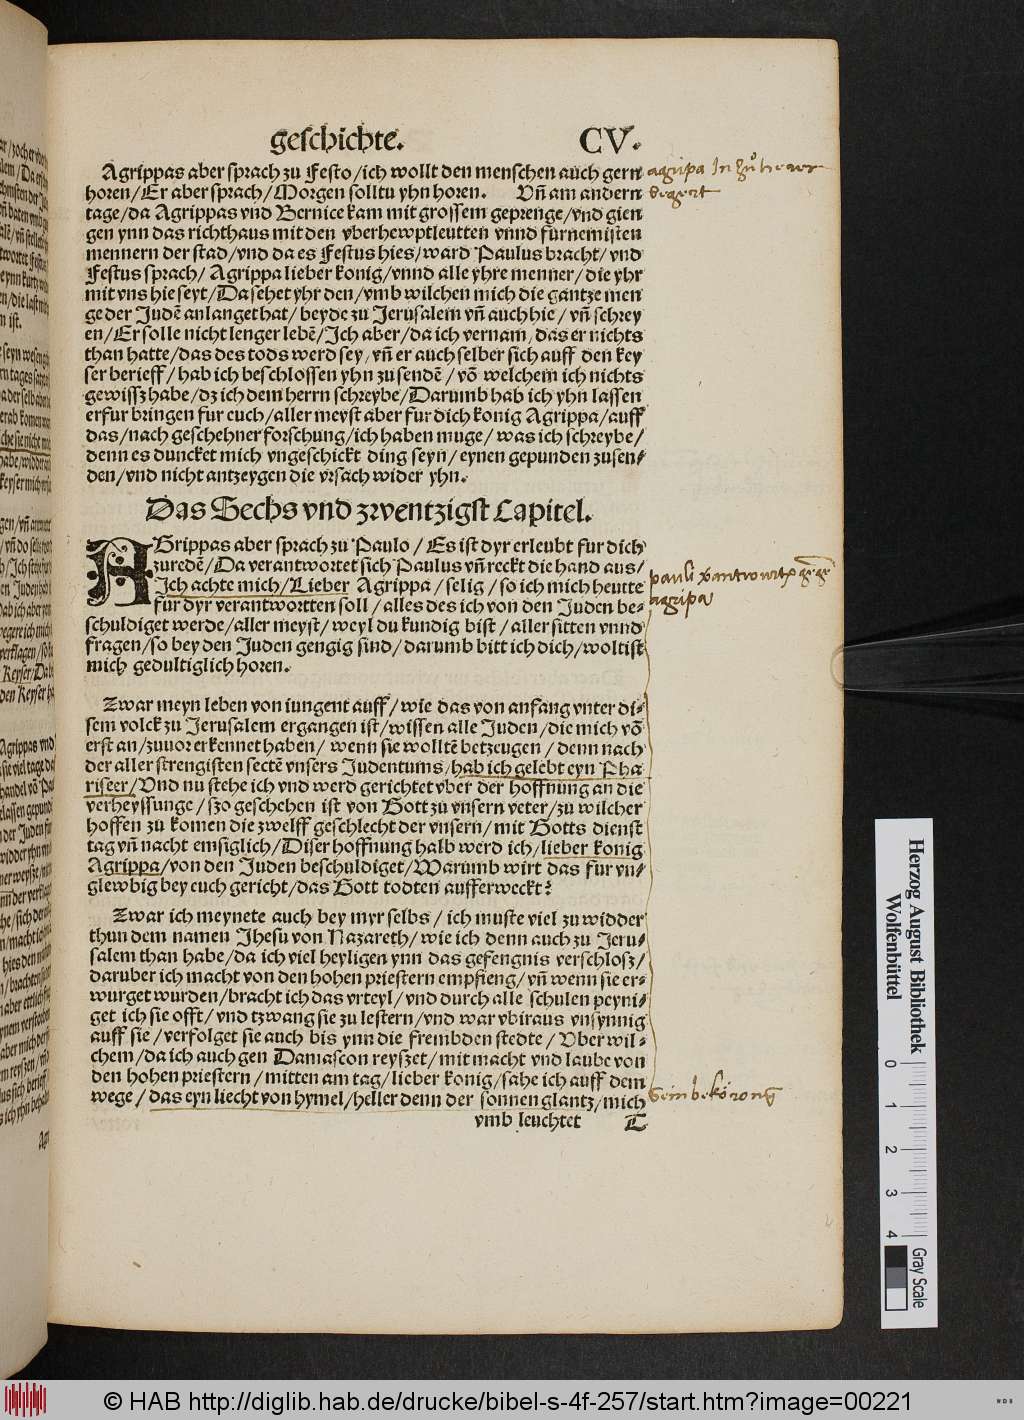 geschichte. CV.
Agrippas aber sprach zu Festo/ich wollt den menschen auch gern
horen/Er aber sprach/Morgen solltu yhn horen. Vn̄ am andern
tage/da Agrippas vnd Bernice kam mit grossem geprenge/vnd gien
gen ynn das richthaus mit den vberhewptleutten vnnd furnemisten
mennern der stad/vnd da es Festus hies/ward Paulus bracht/vnd
Festus sprach/Agrippa lieber konig/vnnd alle yhre menner/die yhr
mit vns hie seyt/Da sehet yhr den/vmb wilchen mich die gantze men
ge der Judē anlanget hat/beyde zu Jerusalem vn̄ auch hie/vn̄ schrey
en/Er solle nicht lenger lebē/Ich aber/da ich vernam/das er nichts
than hatte/das des tods werd sey/vn̄ er auch selber sich auff den key
ser berieff/hab ich beschlossen yhn zu sendē/vō welchem ich nichts
gewissz habe/dz ich dem herrn schreybe/Darumb hab ich yhn lassen
erfur bringen fur euch/aller meyst aber fur dich konig Agrippa/auff
das/nach geschehner forschung/ich haben muge/was ich schreybe/
denn es duncket mich vngeschickt ding seyn/eynen gepunden zusen/
den/vnd nicht antzeygen die vrsach wider yhn.
Das Sechs vnd zwentzigst Capitel.
AGrippas aber sprach zu Paulo/Es ist dyr erleubt fur dich
zuredē/Da verantwortet sich Paulus vn̄ reckt die hand aus/
Ich achte mich/Lieber Agrippa/selig/so ich mich heutte
fur dyr verantwortten soll/alles des ich von den Juden be-
schuldiget werde/aller meyst/weyl du kundig bist/aller sitten vnnd
fragen/so bey den Juden gengig sind/darumb bitt ich dich/woltist
mich gedultiglich horen.
Zwar meyn leben von iungent auff/wie das von anfang vnter di-
sem volck zu Jerusalem ergangen ist/wissen alle Juden/die mich vō
erst an/zuuor erkennet haben/wenn sie wolltē betzeugen/denn nach
der aller strengisten sectē vnsers Judentums/hab ich gelebt eyn Pha
riseer/Vnd nu stehe ich vnd werd gerichtet vber der hoffnung an die
verheyssunge/szo geschehen ist von Gott zu vnsern veter/zu wilcher
hoffen zu komen die zwelff geschlecht der vnsern/mit Gotts dienst
tag vn̄ nacht emsiglich/Diser hoffnung halb werd ich/lieber konig
Agrippa/von den Juden beschuldiget/Warumb wirt das fur vn-
glewbig bey euch gericht/das Gott todten aufferweckt?
Zwar ich meynete auch bey myr selbs/ich muste viel zu widder
thun dem namen Jhesu von Nazareth/wie ich denn auch zu Jeru-
salem than habe/da ich viel heyligen ynn das gefengnis verschlosz/
daruber ich macht von den hohen priestern empfieng/vn̄ wenn sie er-
wurget wurden/bracht ich das vrteyl/vnd durch alle schulen peyni-
get ich sie offt/vnd tzwang sie zu lestern/vnd war vbiraus vnsynnig
auff sie/verfolget sie auch bis ynn die frembden stedte/Vber wil-
chem/da ich auch gen Damascon reyszet/mit macht vnd laube von
den hohen priestern/mitten am tag/lieber konig/sahe ich auff dem
wege/das eyn liecht von hymel/heller denn der sonnen glantz/mich
vmb leuchtet T
agripa In
begert
pauli
agripa
Herzog August Bibliothek
Wolfenbüttel
0 1 2 3 4
Gray Scale
© HAB http://diglib.hab.de/drucke/bibel-s-4f-257/start.htm?image=00221